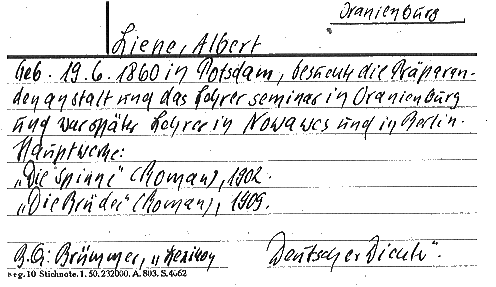 Oranienburg
Liene, Albert
Geb. 19.6.1860 in Potsdam, besuchte die Präparan-
denanstalt und das Lehrerseminar in Oranienburg
und war später Lehrer in Nowawes und in Berlin.
Hauptwerke:
„Die Spinne" (Roman), 1902.
„Die Brüder" (Roman), 1909.
B.A: Brümmer, „Lexikon Deutscher Dichter".
eg. 10 Stichnote. 1. 50. 232000. A. 803. S. 4062